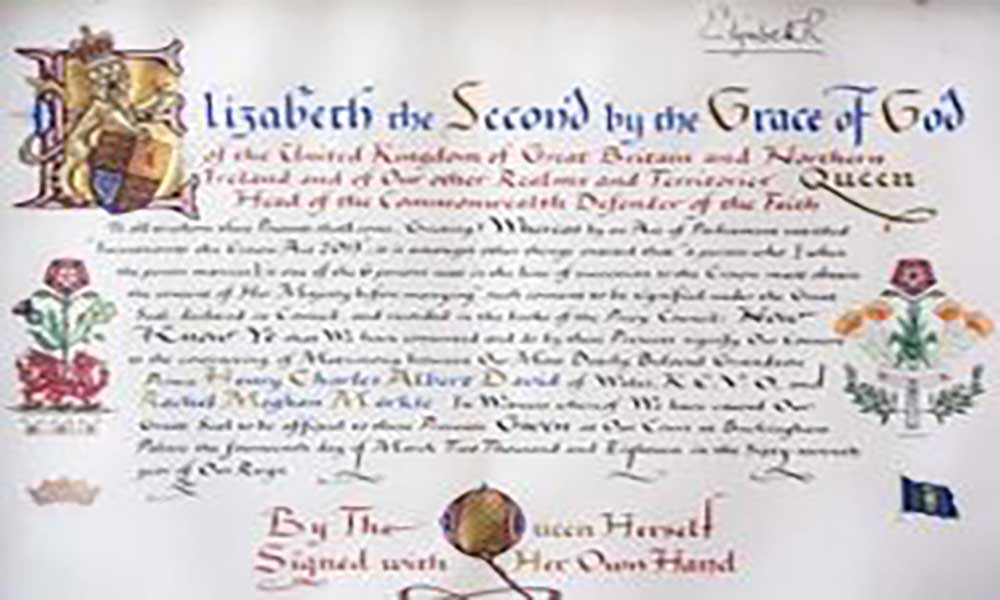 Elizabeth R
Elizabeth the Second by the Grace of God
of the United Kingdom of Great Britain and Northern
Ireland and of Our other Realms and Territories Queen
Head of the Commonwealth Defender of the Faith
To all whom these Presents shall come Greeting! Whereas by an Act of Parliament entitled
the Crown Act 2013 it is amongst other things that "a person who when
the person marries is one of the 6 persons next in the line of succession to the Crown must obtain
the consent of Her Majesty before marrying such consent to be signified under the Great
Seal declared in Council and recorded in the books of the Privy Council: Now
Know Ye that We have consented and do by these Presents signify Our Consent
to the contracting of Matrimony between Our Most Dearly Beloved Grandson
Prince Henry Charles Albert David of Wales, K.C.V.O. and
Rachel Meghan Markle In Witness whereof We have caused Our
Great Seal to be affixed to these Presents Given at Our Court at Buckingham
Palace the fourteenth day of March Two Thousand and Eighteen in the Sixty seventh
year of Our Reign
By The Queen Herself
Signed with Her Own Hand